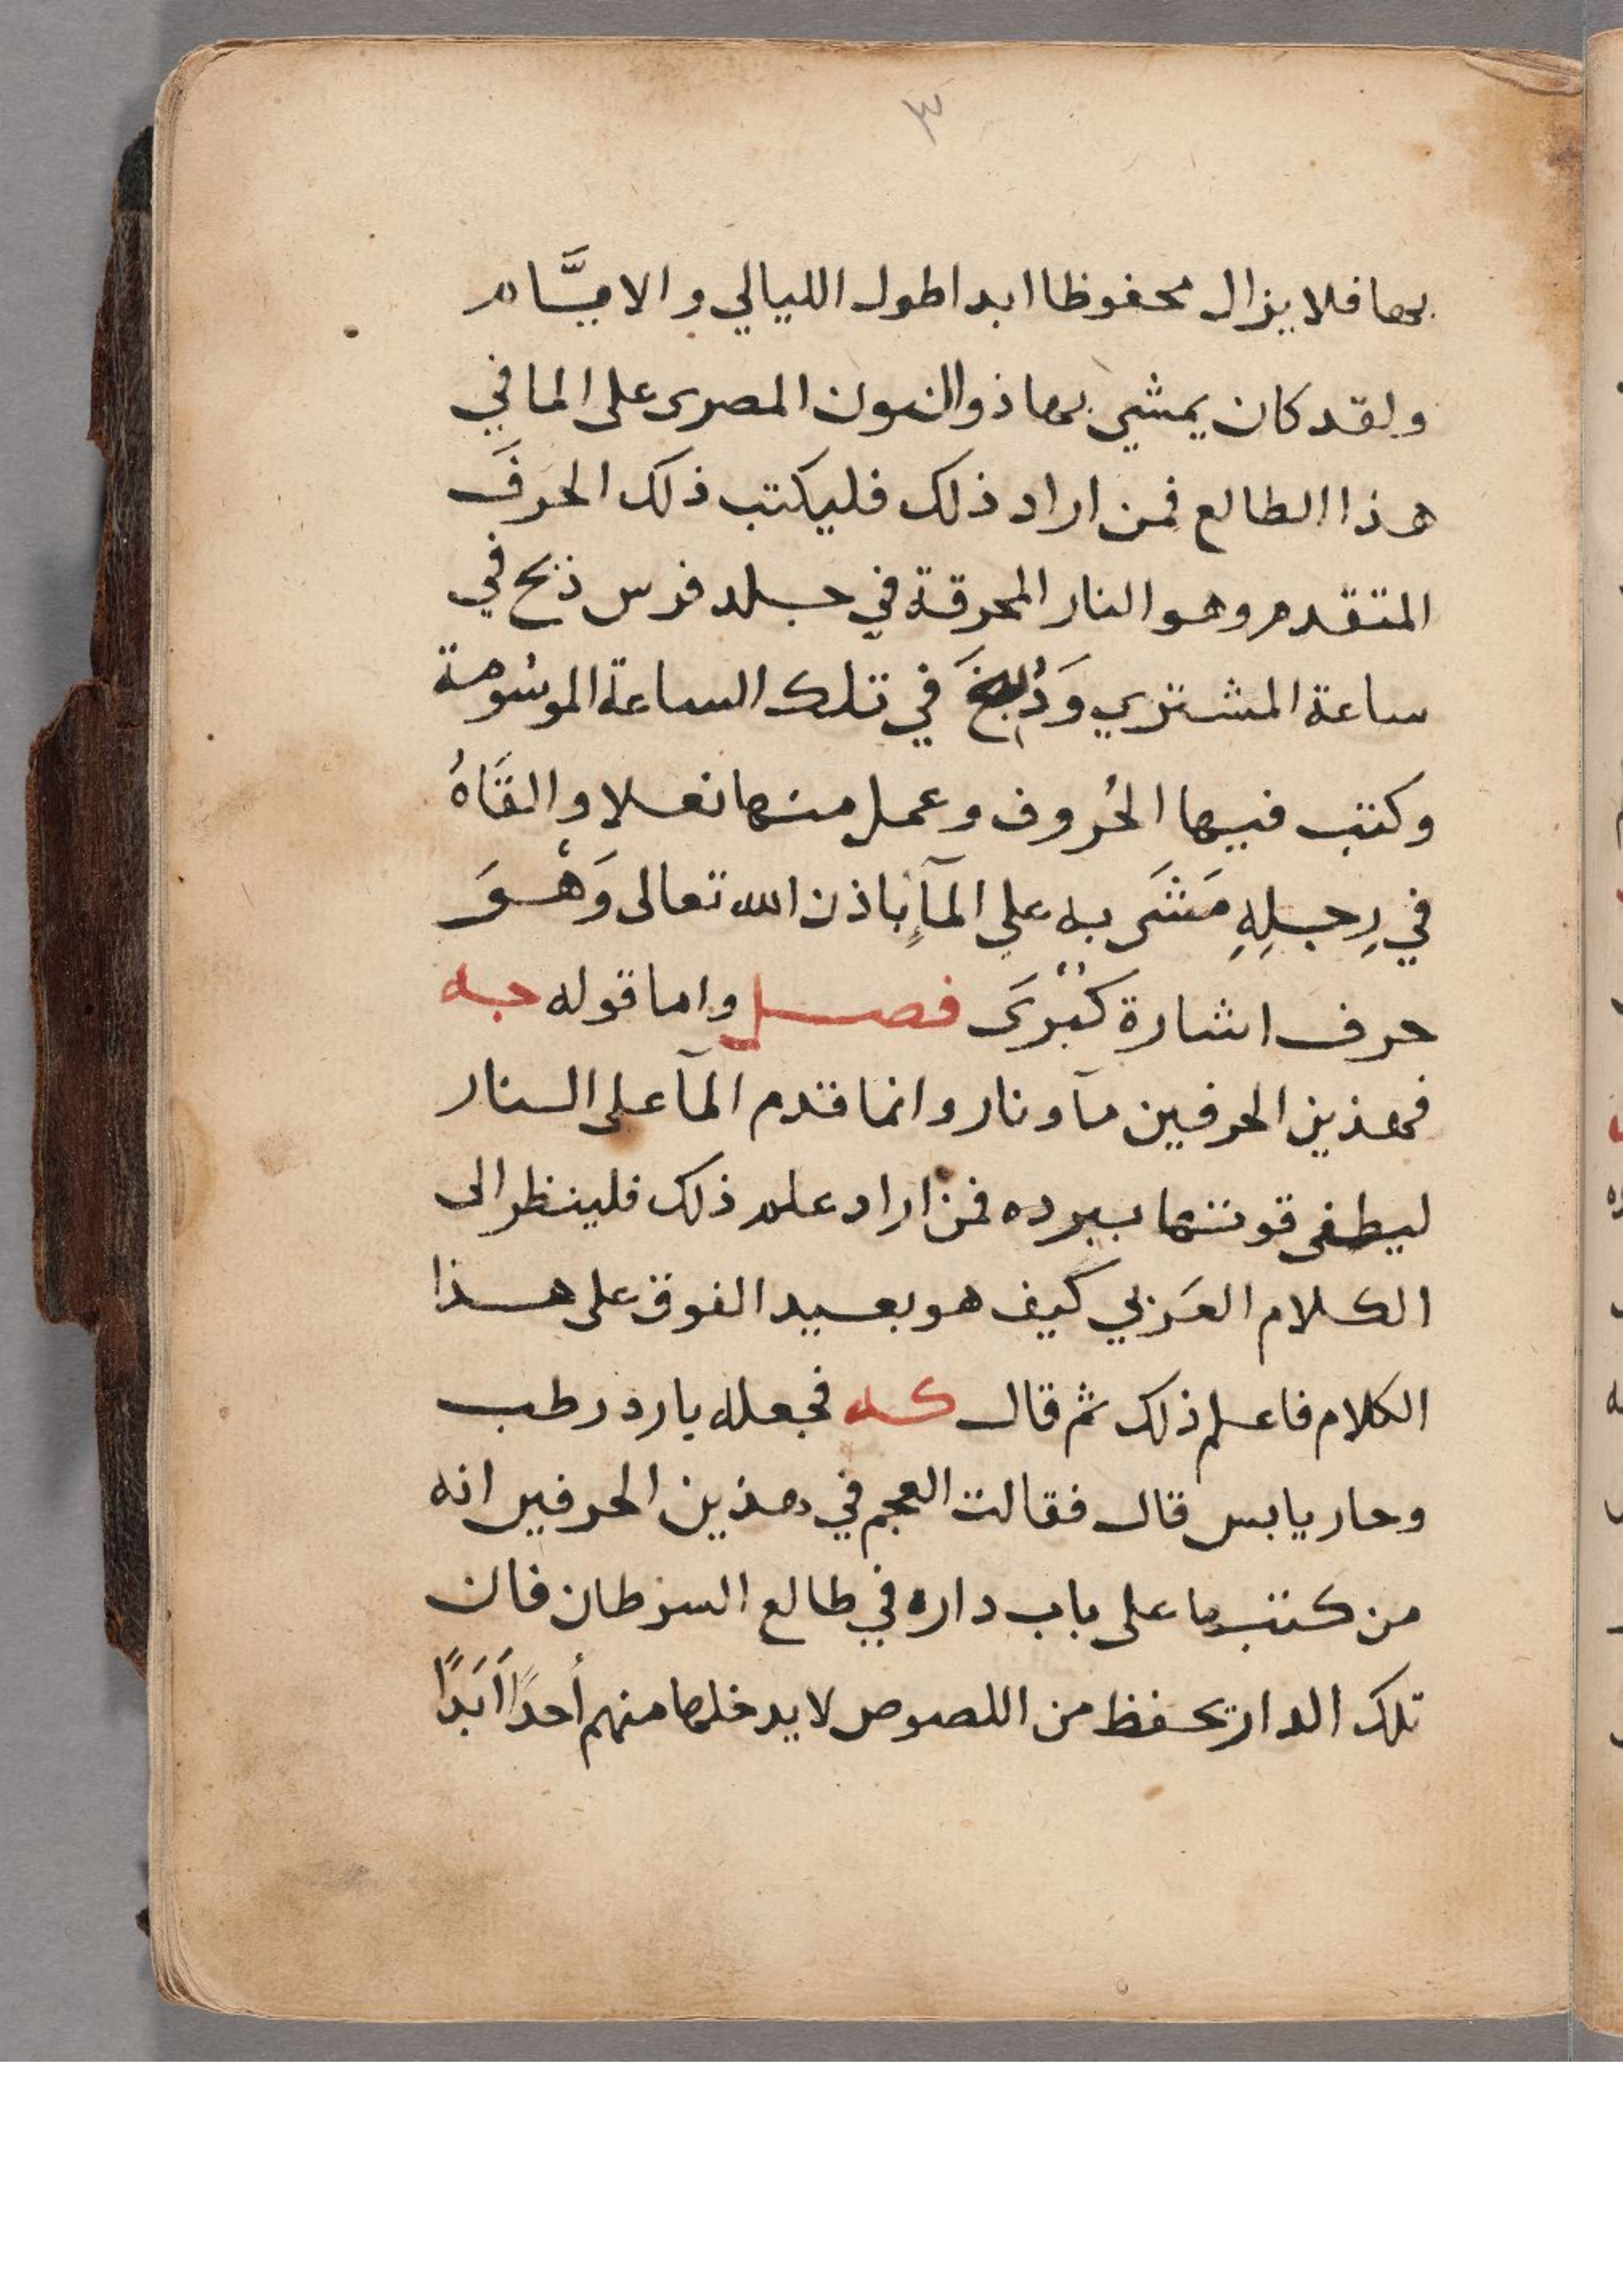 ٣
بها فلا يزال محفوظا ابدا طول الليالي والايَّام
ولقد كان يمشي بها ذو النون المصرى على الما في
هذا الطالع فمن اراد ذلك فليكتب ذلك الحرفَ
المتقدم وهو النار المحرقة في جلد فرس ذبح في
ساعة المشتري وَدُبغَ في تلك الساعة الموسُومة
وكتب فيها الحُروف وعمل منها نعلا والقَاهُ
في رِجلِهِ مَشَى به على المآءِ باذن الله تعالى وَهْوَ
حرف اشارة كُبْرَى فصل واما قوله جه
فهذين الحرفين مآ ونار وانما قدم المآ على النار
ليطفى قوتها ببرده فمن اراد علم ذلك فلينظر الى
الكلام العَربي كيف هو بعيد الفوق على هذا
الكلام فاعلم ذلك ثم قال كه فجعله بارد رطب
وحار يابس قال فقالت العجم في هذين الحرفين انه
من كتبها على باب داره في طالع السرطان فان
تلك الدار تحفظ من اللصوص لا يدخلها منهم أحدًا اَبَدًا